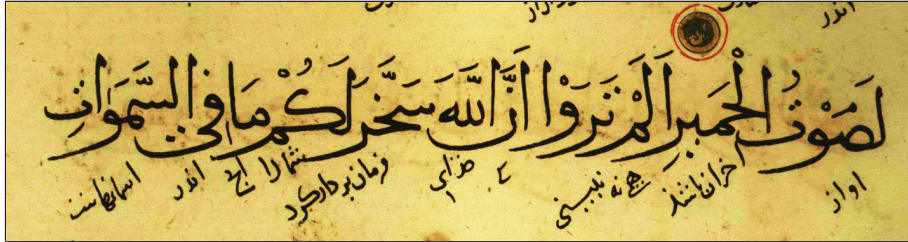 لَصَوْتُ الْحَمِيرِ اَلَمْ تَرَوْا اَنَّ اللّٰهَ سَخَّرَ لَكُمْ مَا فِي السَّمَوَاتِ
اواز خران باشد نه بینی که خدای فرمان بردار کرد شما را انچ اندر اسمانهاست